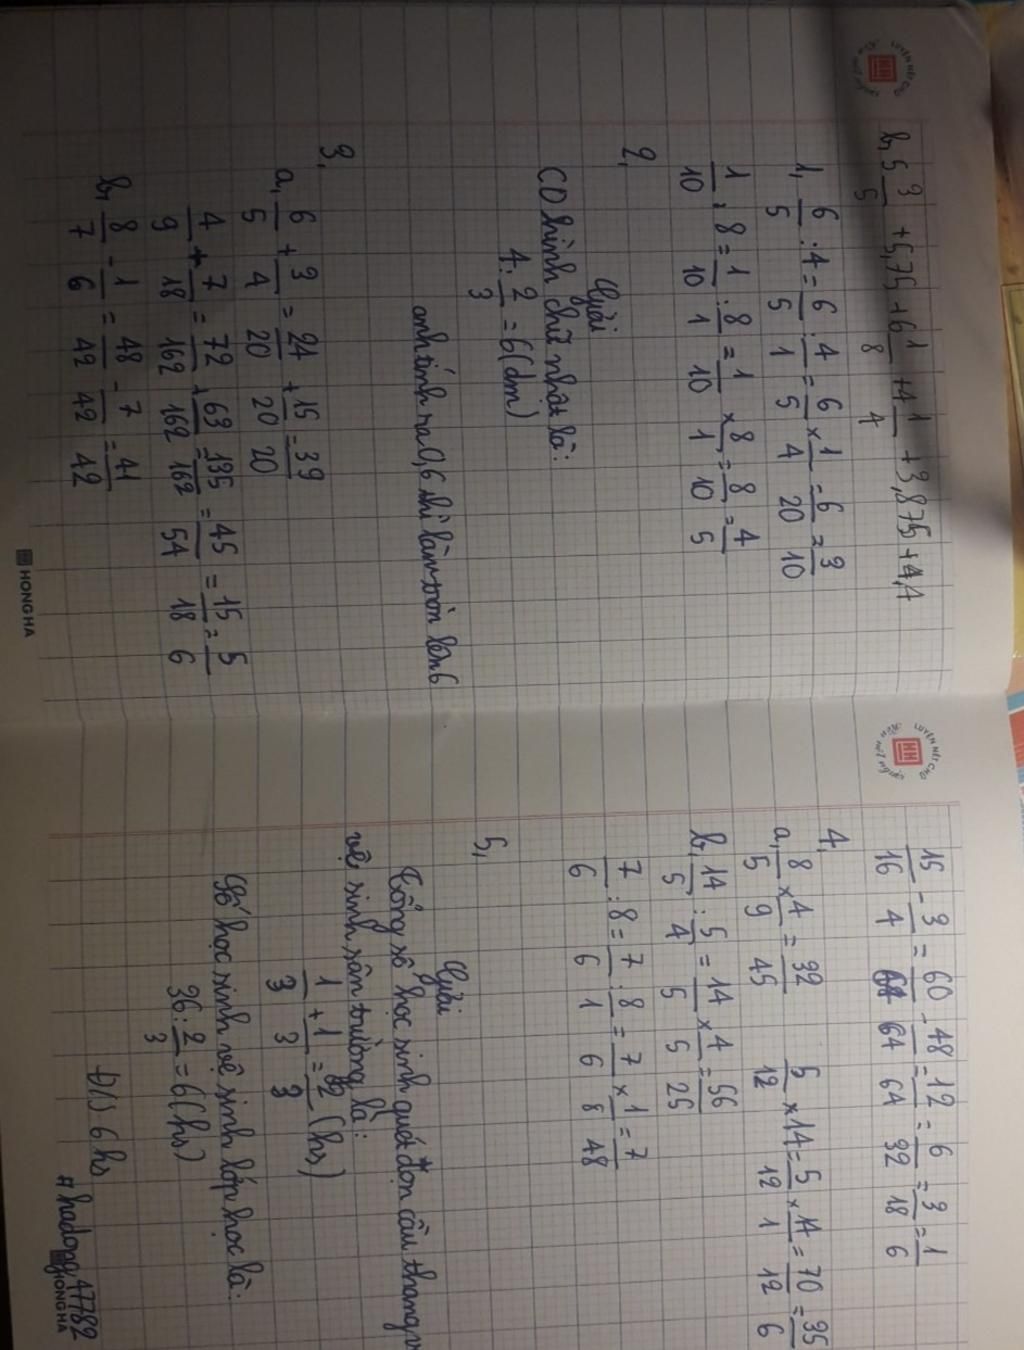 LUYỆN NÉT CHỮ
b, 5 3/5 + 5,75 + 6 1/8 + 4 1/4 + 3,875 + 4,4
1, 6/5 : 4 = 6/5 : 4/1 = 6/5 × 1/4 = 6/20 = 3/10
1/10 : 8 = 1/10 : 8/1 = 1/10 × 8/1 = 8/10 = 4/5
2,
Giải
CD hình chữ nhật là:
4 : 2/3 = 6 (dm)
anh tính ra 0,6 thì làm tròn lên 6
3,
a, 6/5 + 3/4 = 24/20 + 15/20 = 39/20
4/9 + 7/18 = 72/162 + 63/162 = 135/162 = 45/54 = 15/18 = 5/6
b, 8/7 - 1/6 = 48/42 - 7/42 = 41/42
HONGHA
LUYỆN NÉT CHỮ
15/16 - 3/4 = 60/64 - 48/64 = 12/64 = 6/32 = 3/18 = 1/6
4,
a, 8/5 × 4/9 = 32/45 5/12 × 14 = 5/12 × 14/1 = 70/12 = 35/6
b, 14/5 : 5/4 = 14/5 × 4/5 = 56/25
7/6 : 8 = 7/6 : 8/1 = 7/6 × 1/8 = 7/48
5,
Giải
Tổng số học sinh quét dọn cầu thang và
vệ sinh sân trường là:
1/3 + 1/3 = 2/3 (hs)
Số học sinh vệ sinh lớp học là:
36 : 2/3 = 6 (hs)
Đ/S 6 hs
# hadong47782
HONGHA